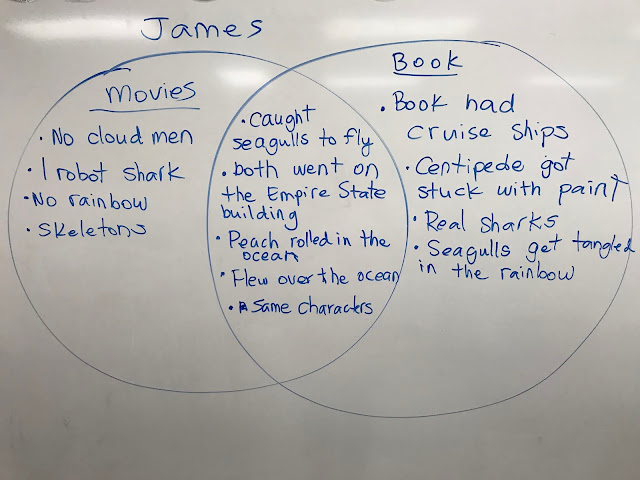 James
Movies
• No cloud men
• 1 robot shark
• No rainbow
• Skeletons
• Caught
seagulls to fly
• both went on
the Empire State
building
• Peach rolled in the
ocean
• Flew over the ocean
• Same characters
Book
• Book had
cruise ships
• Centipede got
stuck with paint
• Real sharks
• Seagulls get tangled
in the rainbow